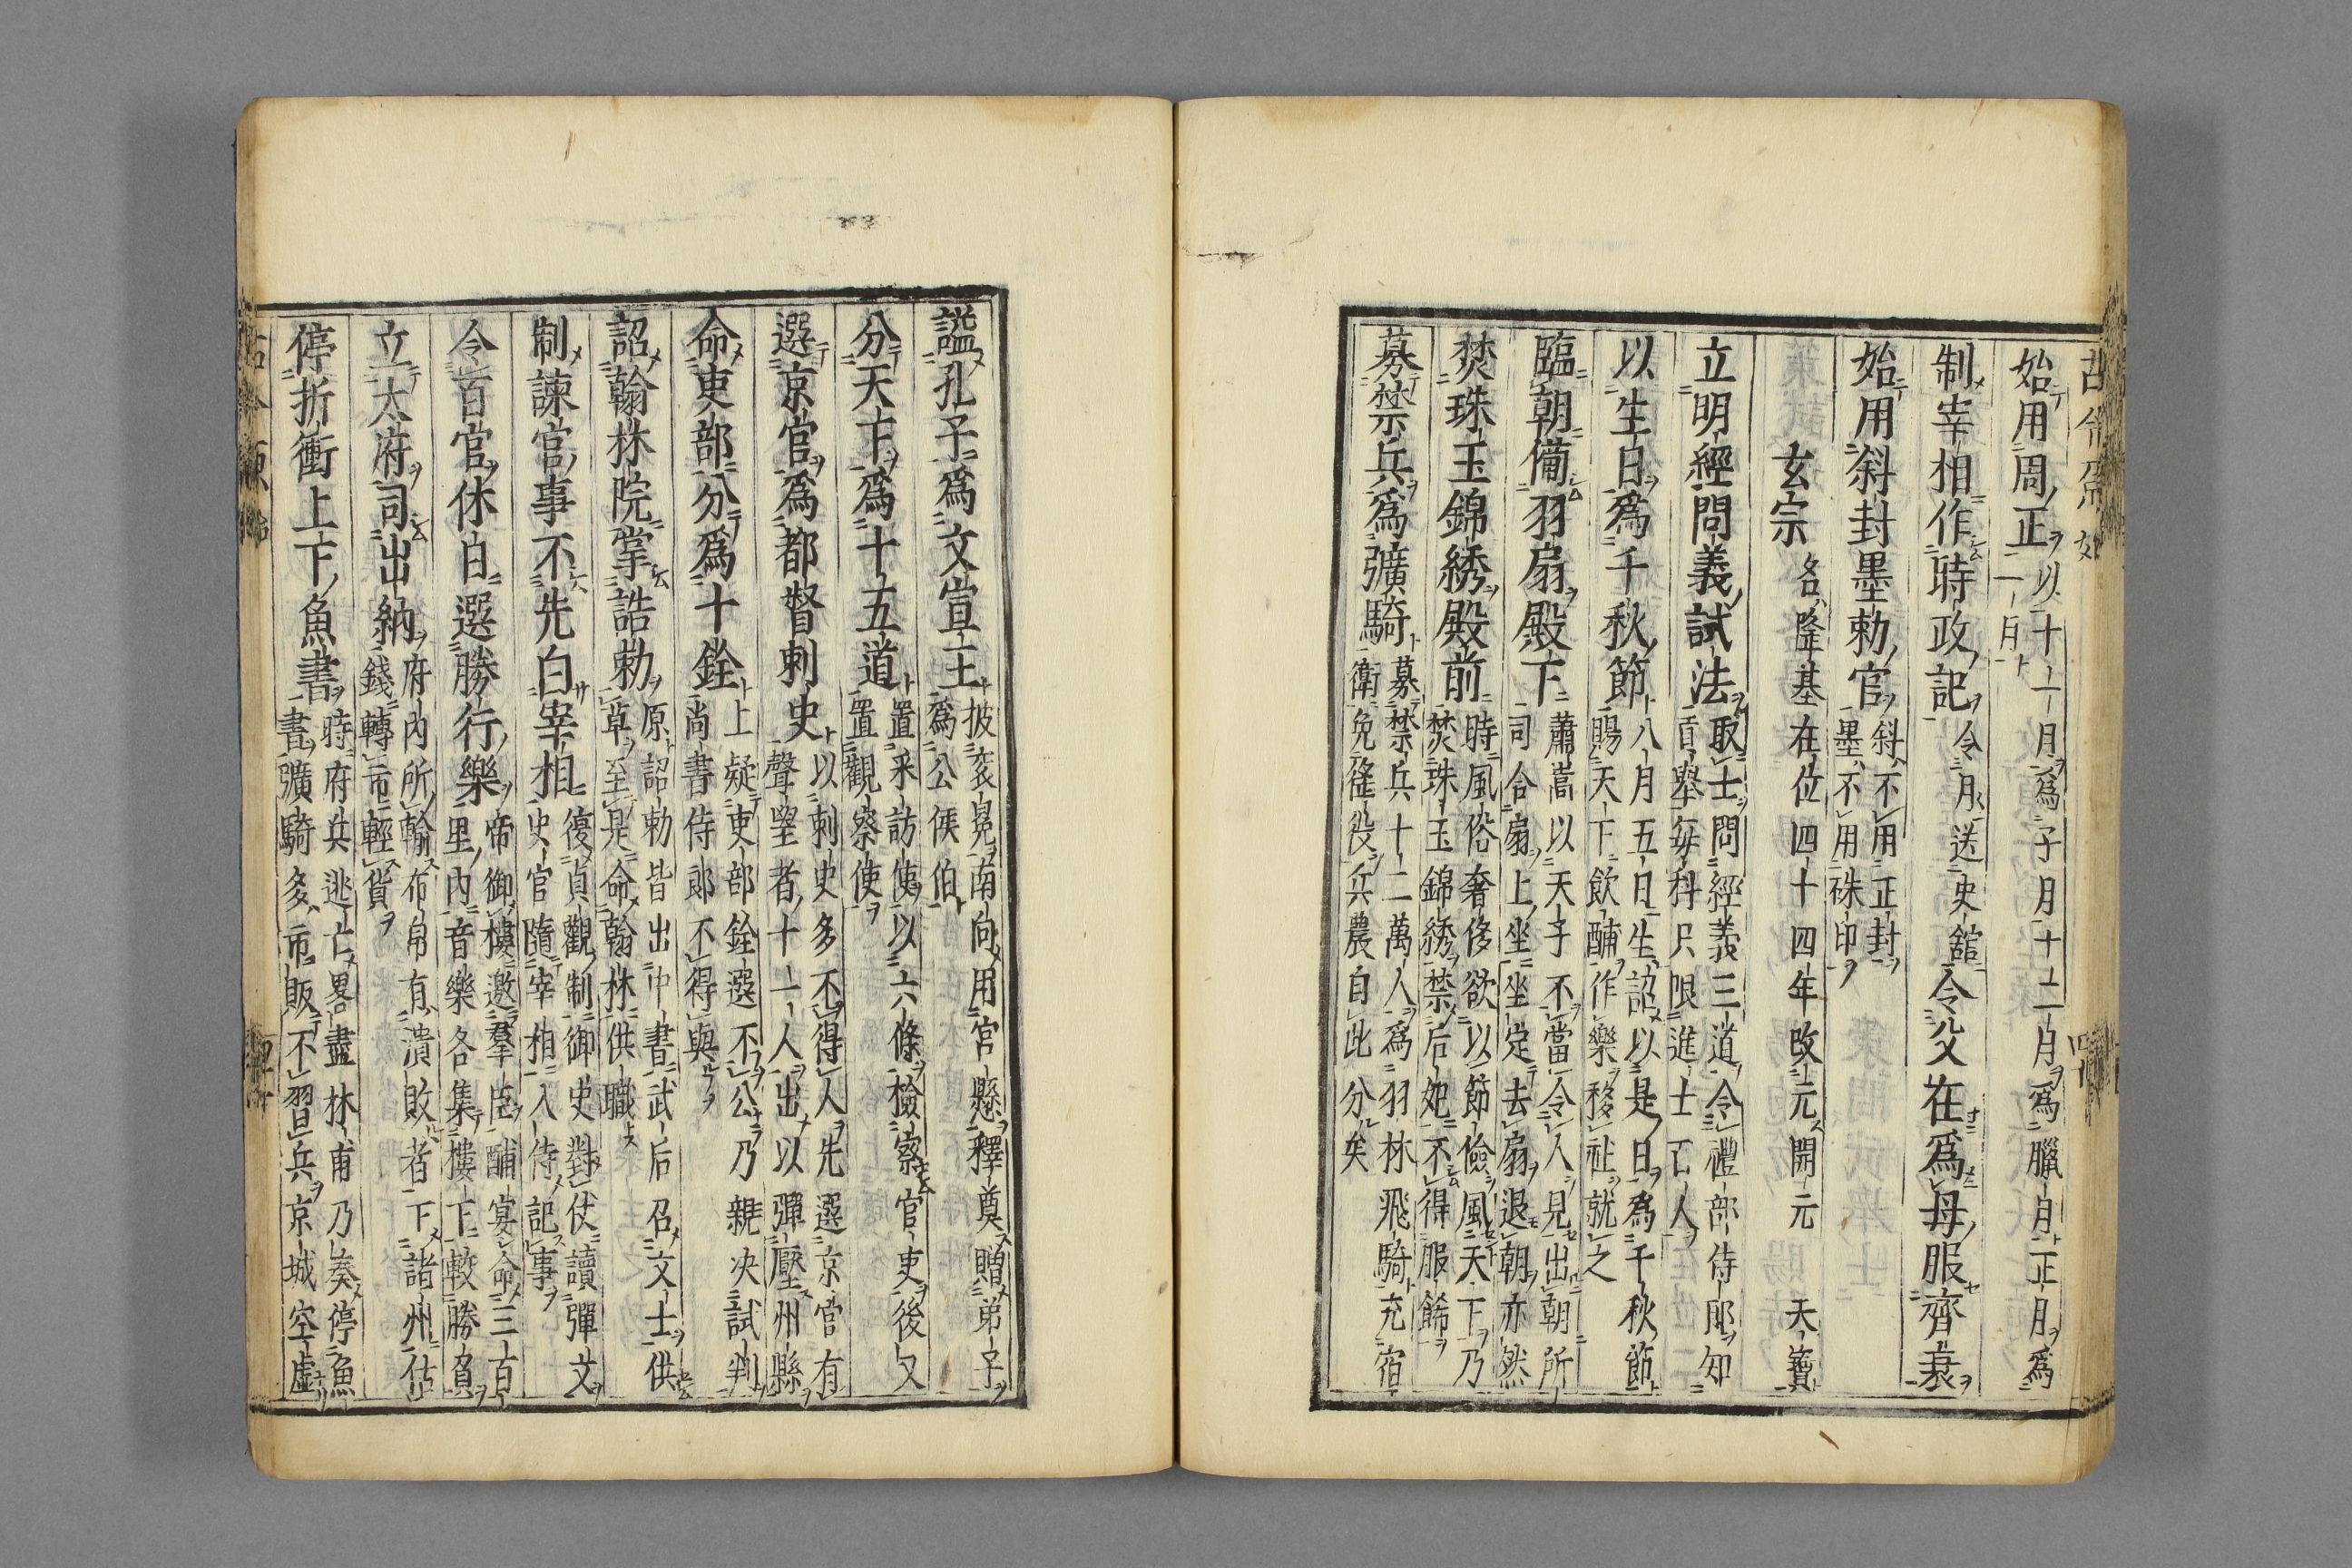 始用周正以十一月爲子月十二月爲臘月正月爲
一月
制宰相作時政記令月送史舘令父在爲母服齊衰
始用斜封墨勅官斜不用正封
墨不用硃印
玄宗名隆基在位四十四年改元開元 天寳
立明經問義試法取士問經義三道令禮部侍郎知
貢舉每科只限進士百人
以生日爲千秋節八月五日生詔以是日爲千秋節
賜天下飲酺作樂移社就之
臨朝備羽扇殿下蕭嵩以天子不當令人見出朝所
司合扇上坐坐定去扇退朝亦然
焚珠玉錦綉殿前時風俗奢侈欲以節儉風天下乃
焚珠玉錦綉禁后妃不得服餙
募禁兵爲彍騎募禁兵十二萬人爲羽林飛騎充宿
衛免徭役兵農自此分矣
謚孔子爲文宣王披衮冕南向用官懸釋奠贈弟子
爲公侯伯
分天下爲十五道置采訪使以六條檢察官吏後又
置觀察使
選京官爲都督刺史以刺史多不得人先選京官有
聲望者十一人出以彈壓州縣
命吏部分爲十銓上疑吏部銓選不公乃親决試判
尚書侍郎不得與
詔翰林院掌誥勅原詔勅皆出中書武后召文士供
草至是命翰林供職
制諫官事不先白宰相復貞觀制御史對仗讀彈文
史官隨宰相入侍記事
令百官休日選勝行樂帝御樓邀羣臣酺宴命三百
里内音樂各集樓下較勝負
立太府司出納府内所輸布帛有潰敗者下諸州估
錢轉市輕貨
停折衝上下魚書時府兵逃亡畧盡林甫乃奏停魚
書彍騎多市販不習兵京城空虚